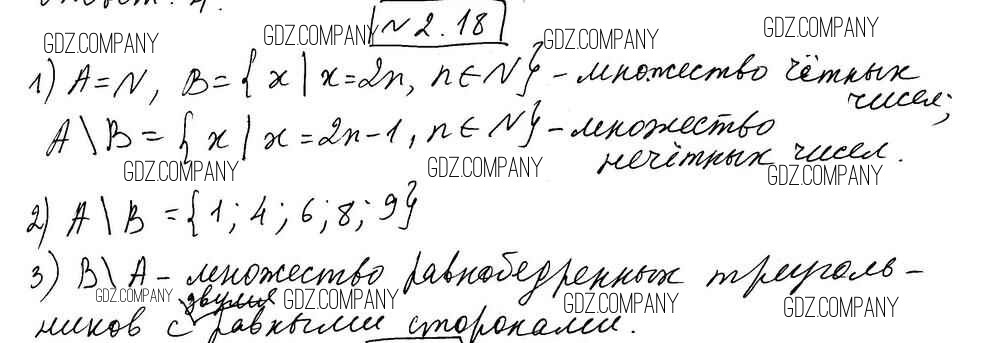 № 2.18
GDZ.COMPANY GDZ.COMPANY GDZ.COMPANY GDZ.COMPANY
1) A=N, B={x | x=2n, n∈N} - множество чётных
чисел;
A\B={x | x=2n-1, n∈N} - множество
нечётных чисел.
GDZ.COMPANY GDZ.COMPANY GDZ.COMPANY
2) A\B={1; 4; 6; 8; 9}
3) B\A - множество равнобедренных треуголь-
GDZ.COMPANY двумя GDZ.COMPANY GDZ.COMPANY GDZ.COMPANY
ников с равными сторонами.